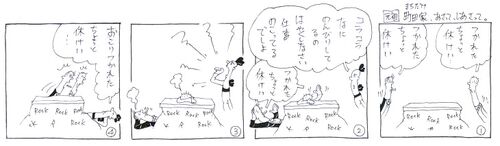 まちだけ
元祖 町田家、あさって、しあさって。
つかれた
ちょっと
休けい
つかれた
ちょっと
休けい
Rock Rock Rock
Rock
①
コラコラ
なに
のんびりして
るの
はやくしなさい
仕事
のこってる
でしょ
つかれた
ちょっと
休けい
Rock Rock Rock
Rock
②
Rock Rock Rock
Rock
③
おこりつかれた
ちょっと
休けい…
Rock Rock Rock
Rock
④